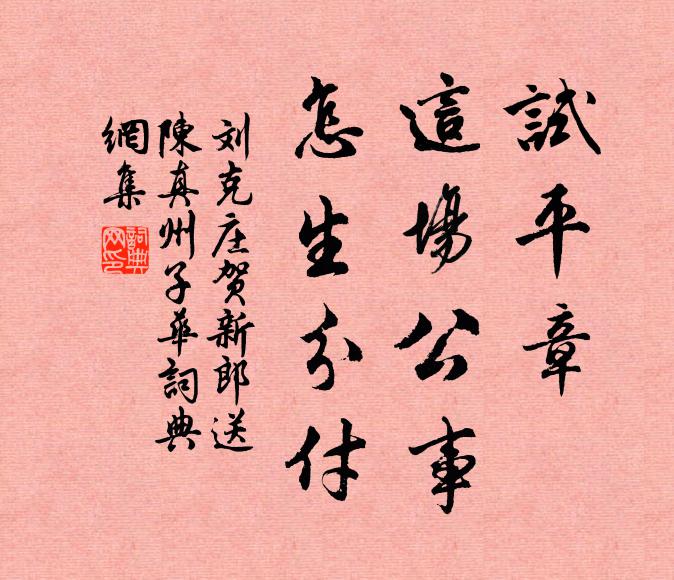 試平章
這場公事
怎生分付
刘克庄贺新郎送
陳真州子華詞典
網集
詞典
网印